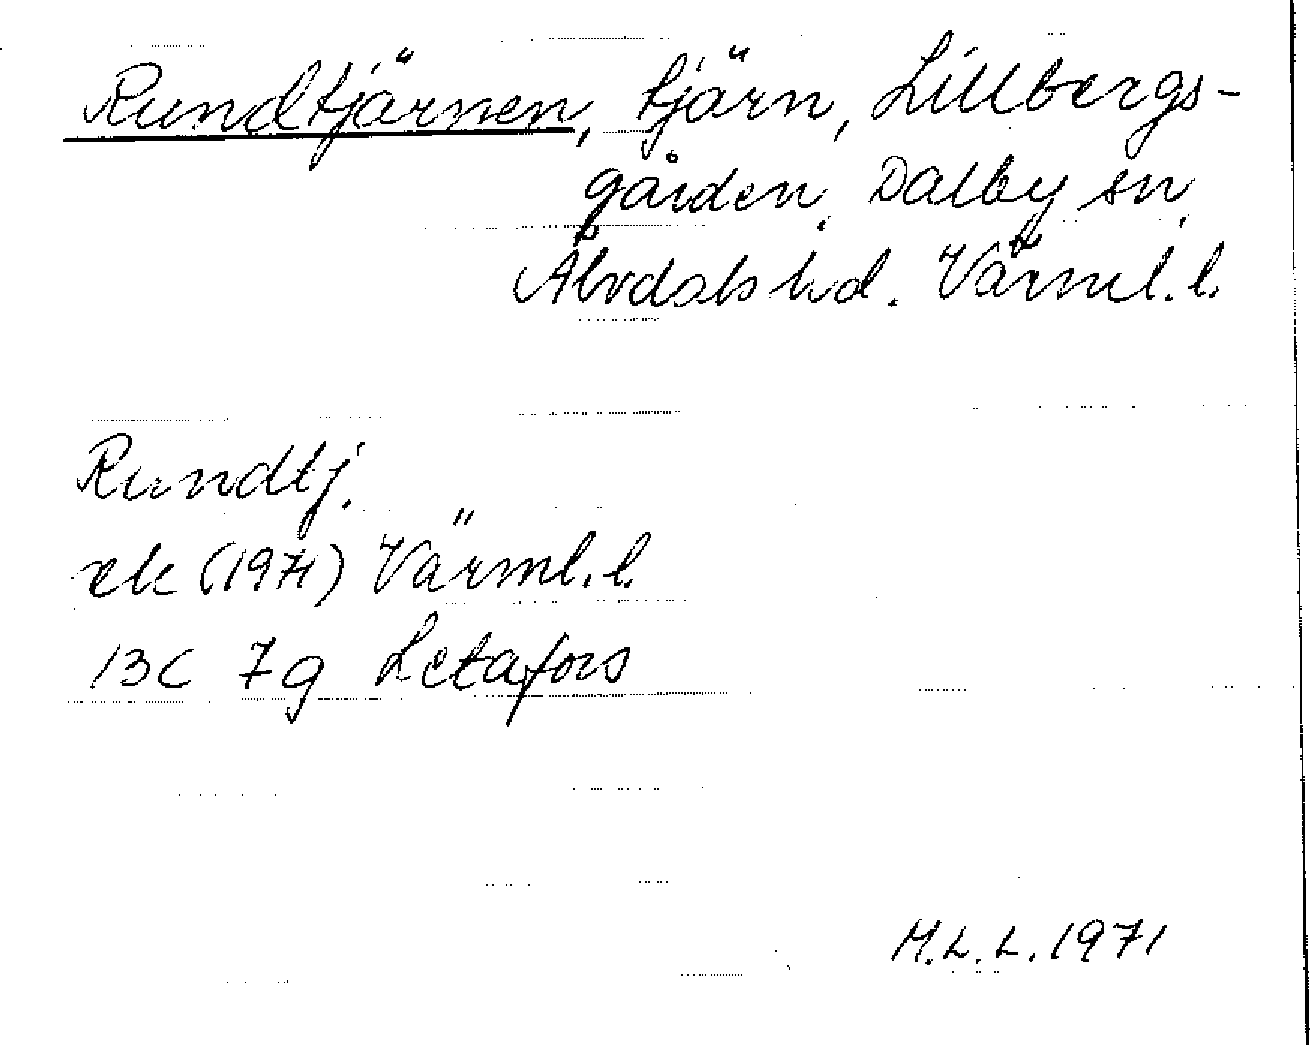 Rundtjärnen, tjärn, Lillbergs-
gården, Dalby sn,
Älvdals hd. Värml. l.
Rundtj.
ek (1971) Värml. l.
13C 7g Letafors
M.L.L. 1971